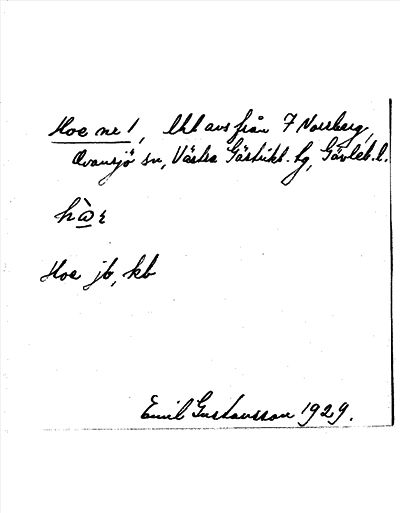 Hoe nr 1, lht avs från 7 Norrberg,
Ovansjö sn, Västra Gästrikl. tg, Gävleb. l.
hὼɛ
Hoe jb, kb
Emil Gustavsson 1929.